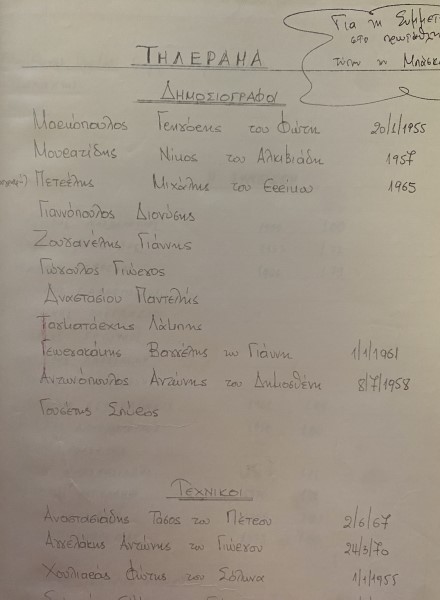 Για τη Συμμετ
στο πρωτάθλη
τύπου κ Μπάσκ
ΤΗΛΕΡΑΜΑ
ΔΗΜΟΣΙΟΓΡΑΦΟΙ
Μαρκόπουλος Γρηγόρης του Φώτη 20/1/1955
Μουρατίδης Νίκος του Αλκιβιάδη 1957
Πετρέλης Μιχάλης του Ερρίκου 1965
Γιαννόπουλος Διονύσης
Ζουγανέλης Γιάννης
Γώγουλος Γιώργος
Αναστασίου Παντελής
Ταγματάρχης Λάμπης
Γεωργακάκης Βαγγέλης του Γιάννη 1/1/1961
Αντωνόπουλος Αντώνης του Δημοσθένη 8/7/1958
Γουσέτης Σπύρος
ΤΕΧΝΙΚΟΙ
Αναστασιάδης Τάσος του Πέτρου 2/6/67
Αγγελάκης Αντώνης του Γιώργου 24/3/70
Χουλιαράς Φώτης του Σόλωνα 1/1/1955